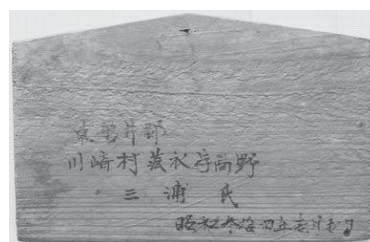 東磐井郡
川崎村薄衣字高野
三浦氏
昭和参拾四年壱月壱日